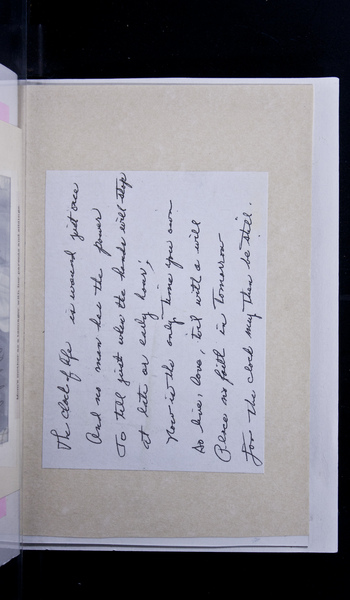 The clock of life is wound just once
And no man has the power
To tell just when the hands will stop
at late or early hour;
Now is the only time you own
So live, love, toil with a will
Place no faith in Tomorrow
For the clock may then be still.